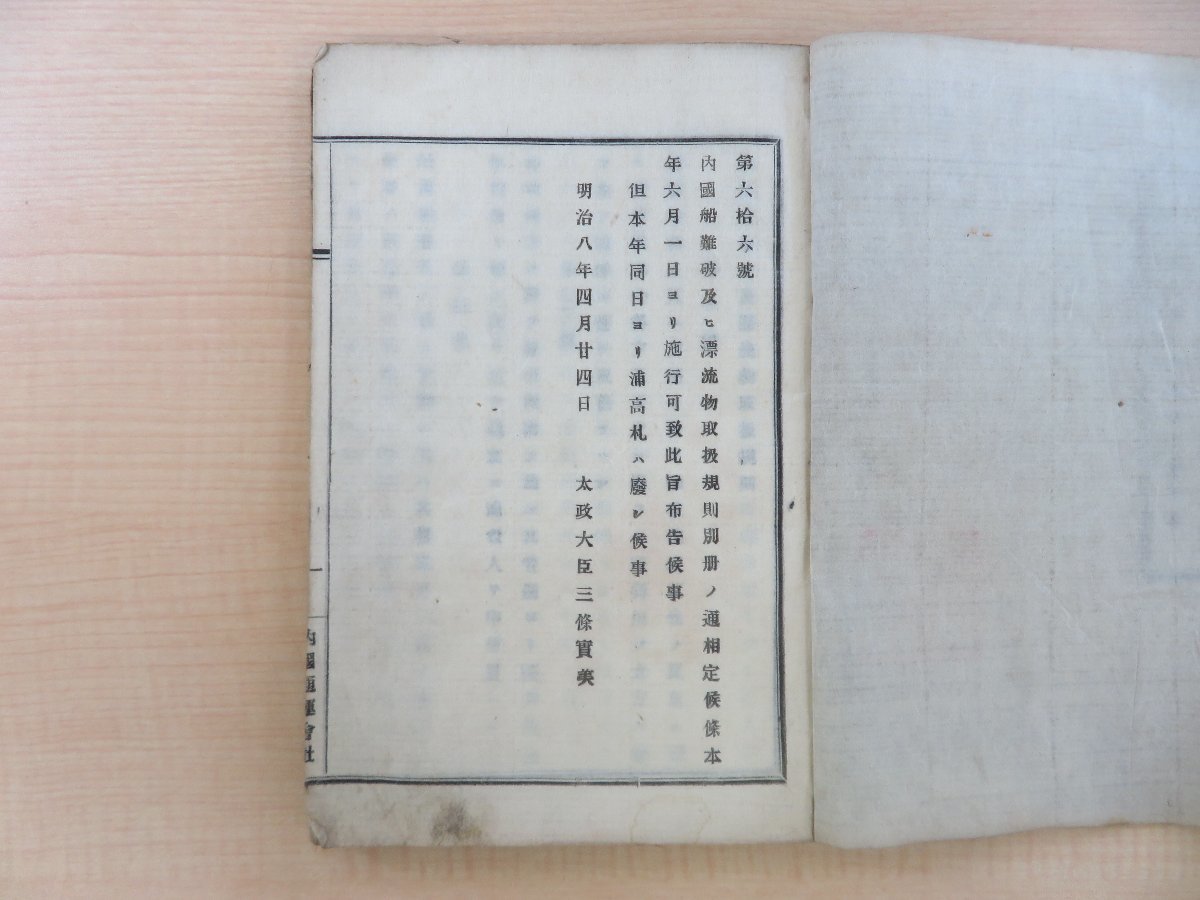 第六拾六號
內國船難破及ヒ漂流物取扱規則別册ノ通相定候條本
年六月一日ヨリ施行可致此旨布告候事
但本年同日ヨリ浦高札ハ廢シ候事
明治八年四月廿四日　太政大臣三條實美
內國通運會社